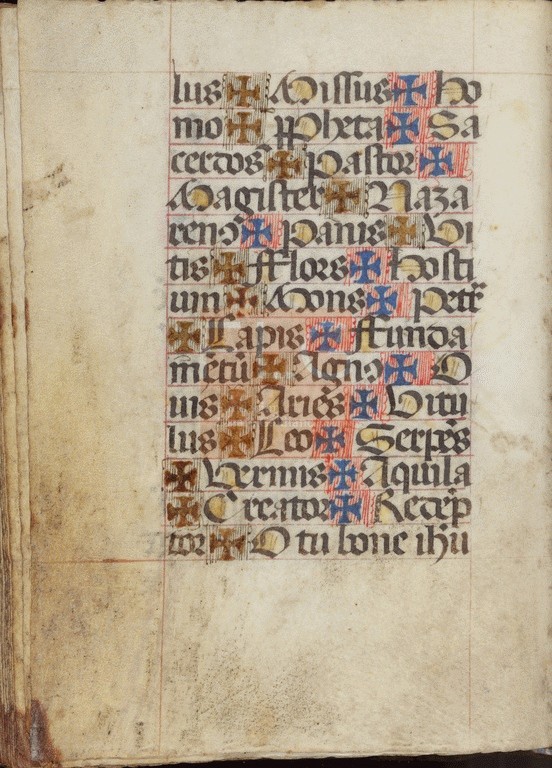 lus ✠ Missus ✠ Ho
mo ✠ ppheta ✠ Sa
cerdos ✠ pastor ✠
Magister ✠ Naza
renꝰ ✠ panis ✠ Vi
tis ✠ fflors ✠ Hosti
um ✠ Mons ✠ petrͣ
✠ Lapis ✠ ffunda
mētū ✠ Agnꝰ ✠ O
uis ✠ Aries ✠ Vitu
lus ✠ Leo ✠ Serpēs
✠ Vermis ✠ Aquila
✠ Creator ✠ Redēp
tor ✠ O tu bone ihū